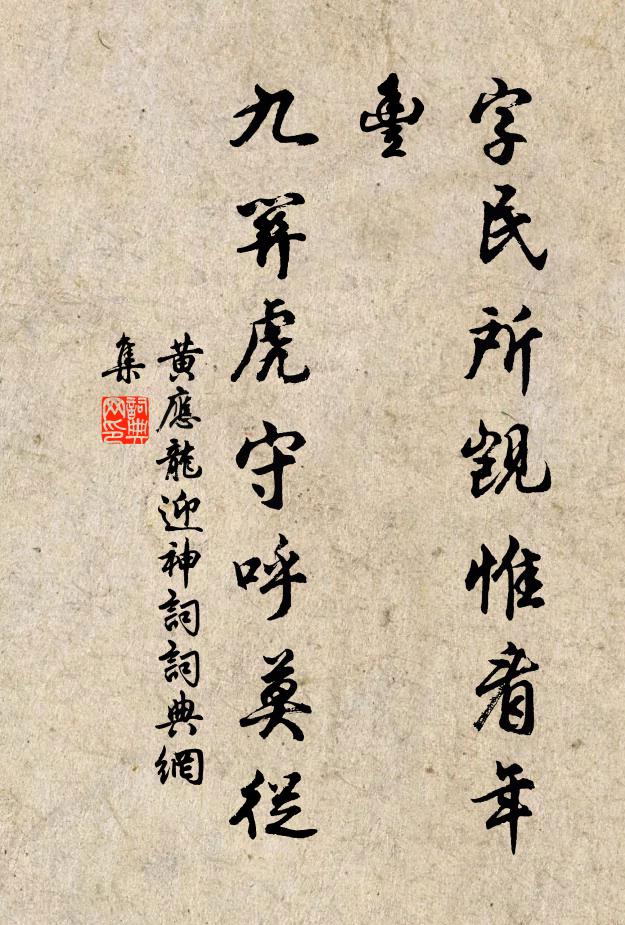 字民所覬惟看年
豐
九關虎守呼莫從
黄應龍迎神詞詞典網
集
詞典
网印